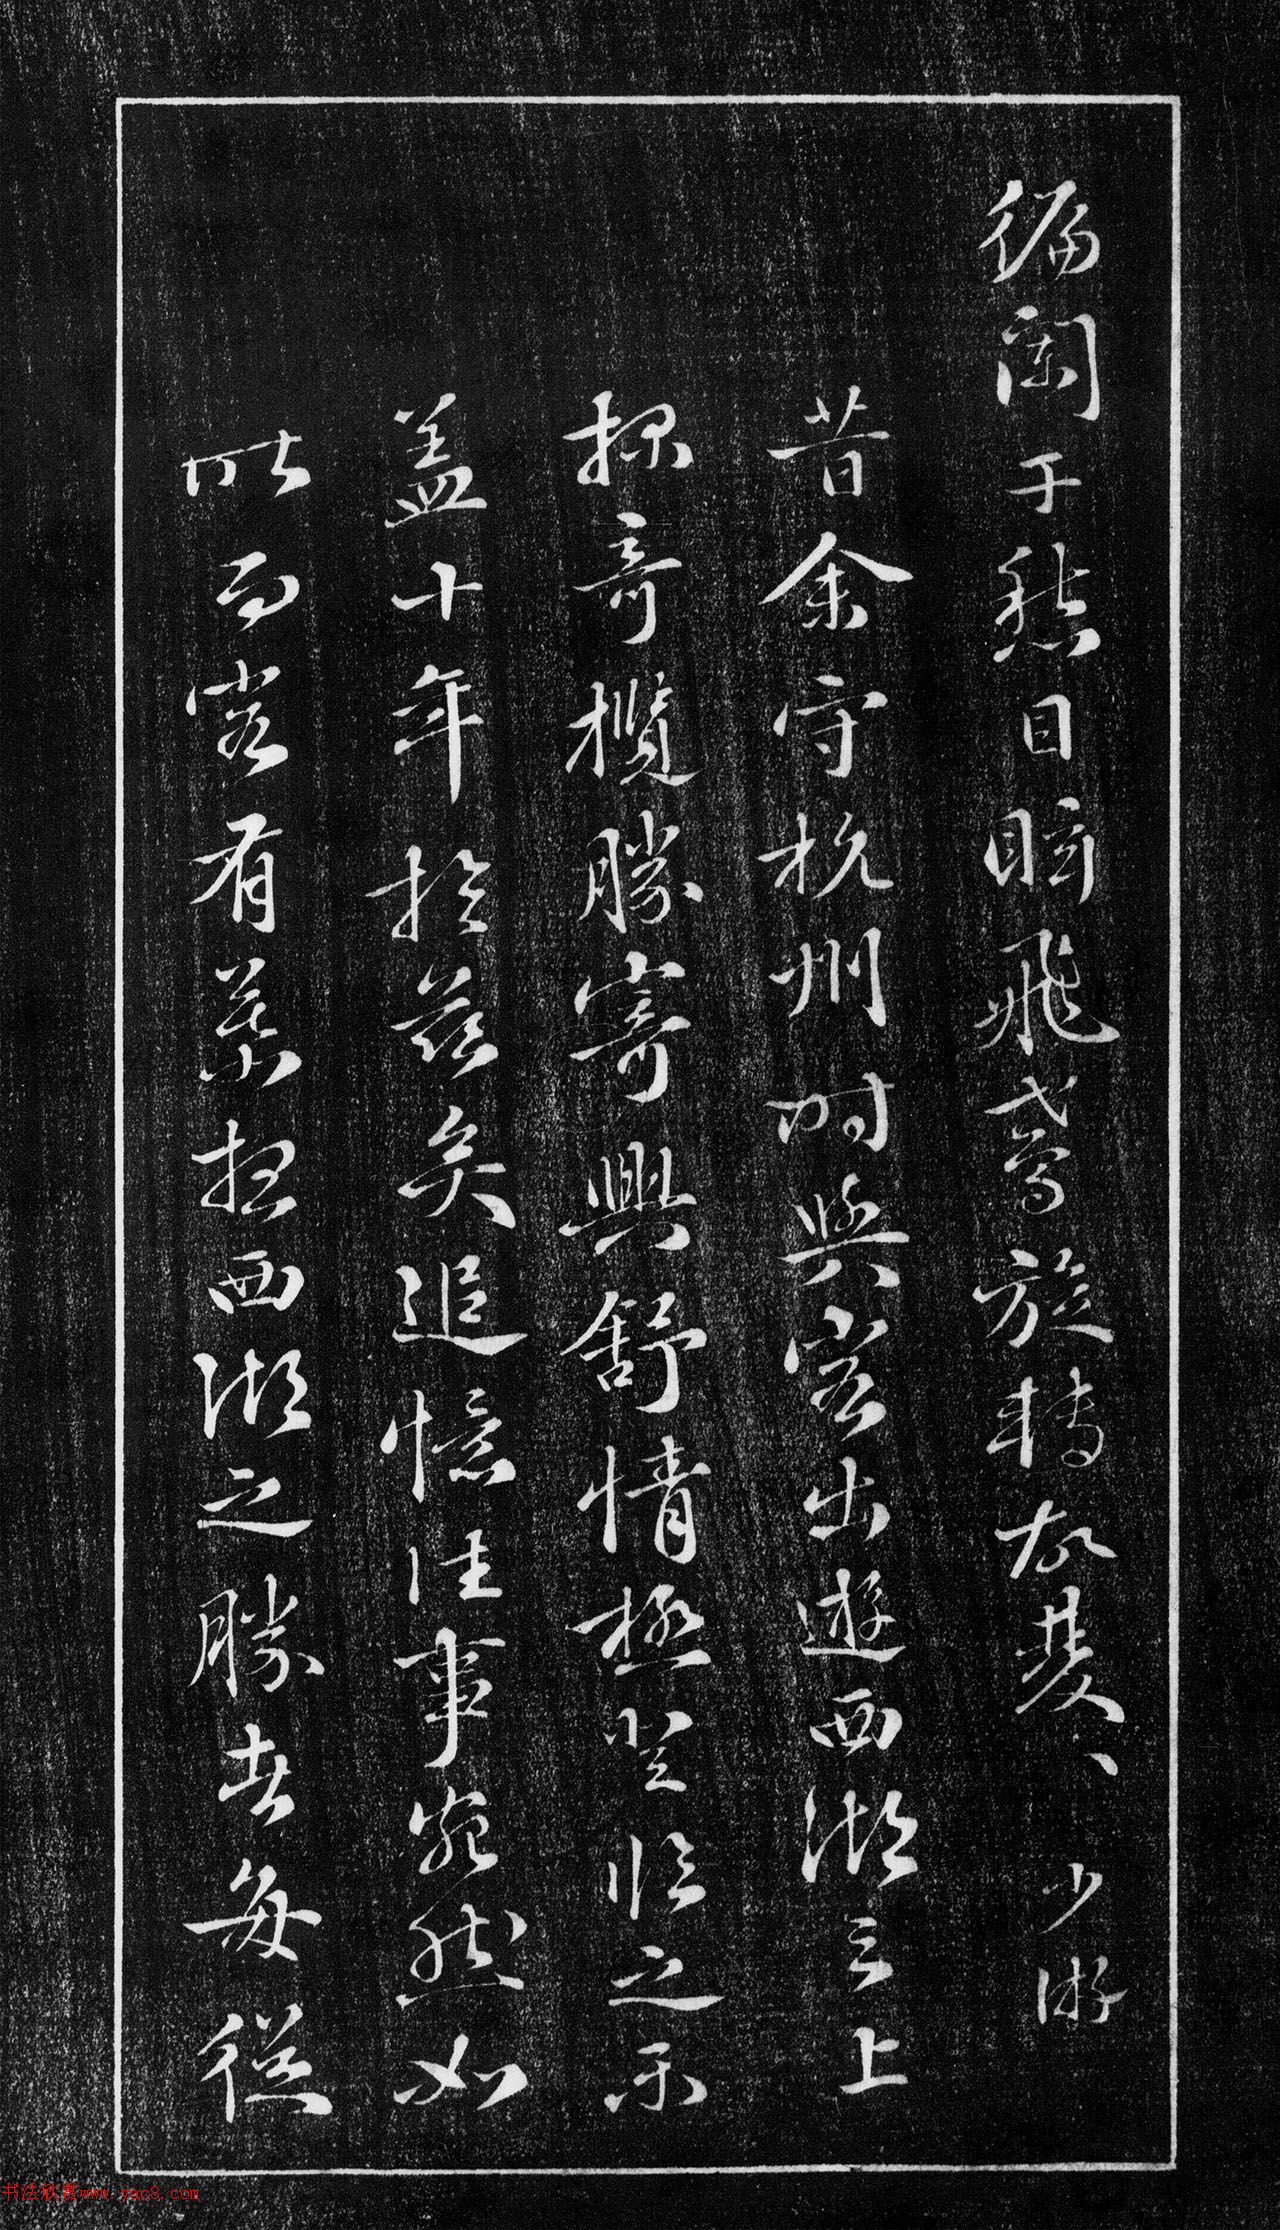 徧闌干愁目眩飛鳶旋轉故𠬧〻 少游
昔余守杭州時與客出遊西湖之上
採奇欖勝寄興舒情極登臨之樂
盖十年於茲矣追憶往事宛然如
昨而客有募扵西湖之勝者每從
书法欣赏www.yac8.com